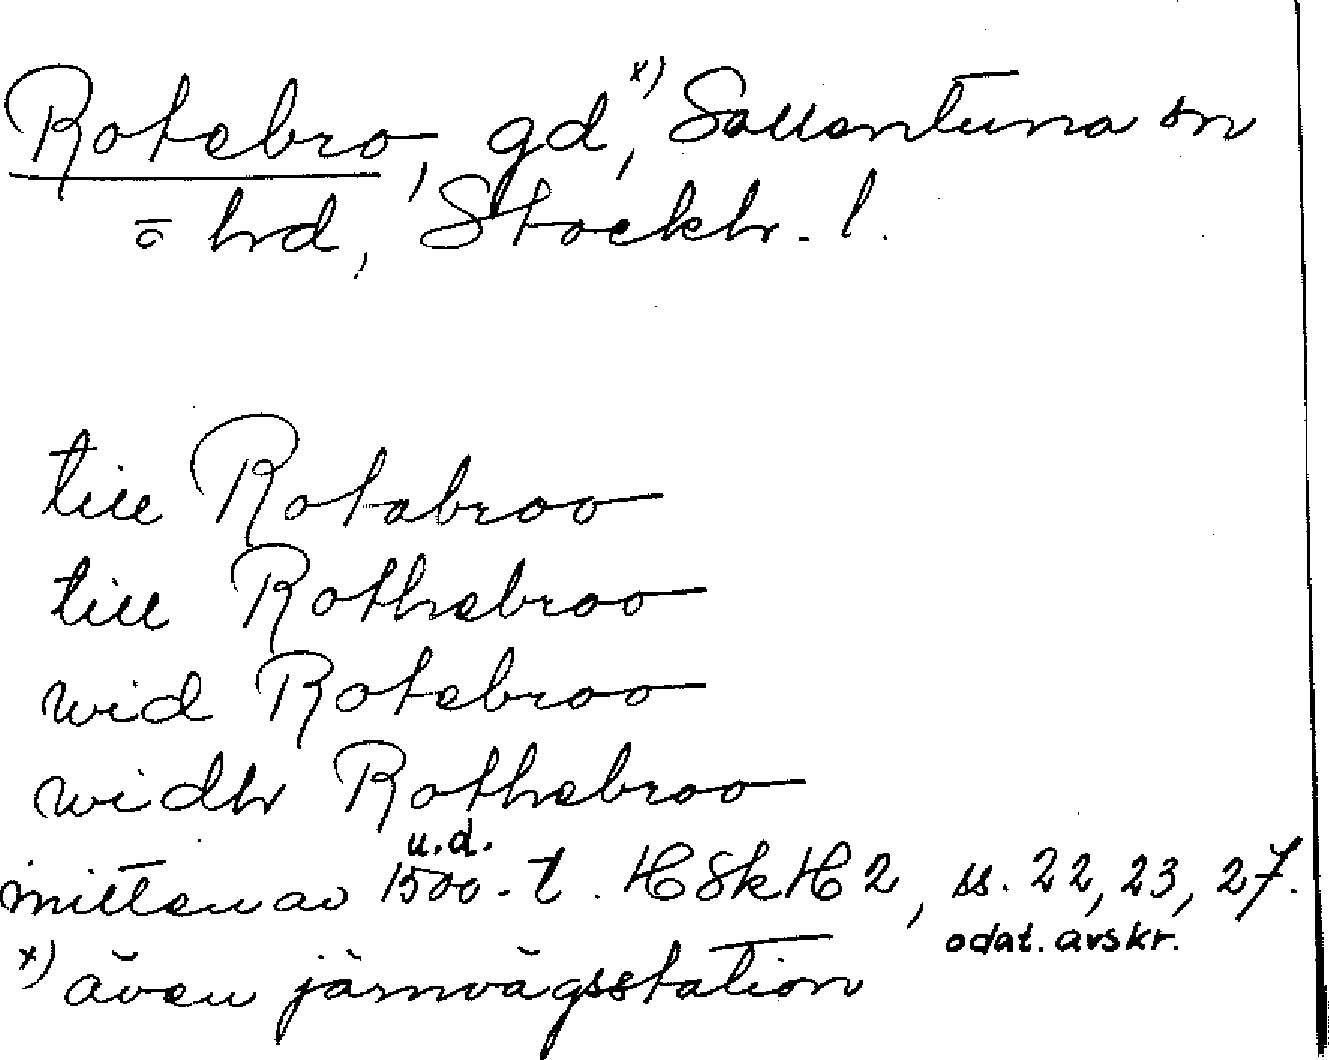 Rotebro, gd,ˣ⁾ Sollentuna sn
o hd, Stockh. l.
till Rotabroo
till Rothebroo
wid Rotebroo
widh Rothebroo
u.d.
mitten av 1500-t. HSkH 2, ss. 22, 23, 27.
odat. avskr.
x) även järnvägsstation